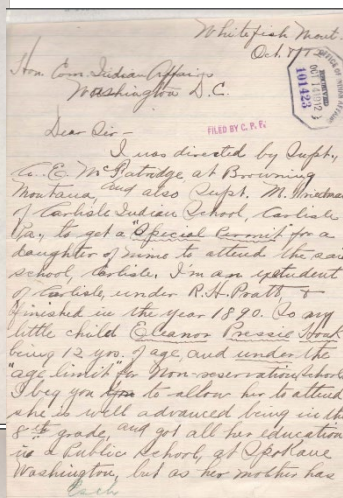 Whitefish Mont.
Oct.
OFFICE OF INDIAN AFFAIRS
RECEIVED
OCT 14 1912
101423
Hon. Com. Indian Affairs
Washington D.C.
FILED BY C. P. F.
Dear Sir-
I was directed by Supt.,
C. E. McFatridge at Browning
Montana, and also Supt. M. Friedman
of Carlisle Indian School, Carlisle
Pa., to get a "Special Permit" for a
daughter of mine to attend the said
school, Carlisle. I'm an
of Carlisle, under R. H. Pratt &
finished in the year 1890. So my
little child Eleanor Pressie
being 12 yrs. of age, and under the
"age limit" for Non-reservation Schools
I beg you to allow her to attend
she is well advanced being in the
8th grade, and got all her education
in a Public School, at Spokane
Washington, but as her mother has